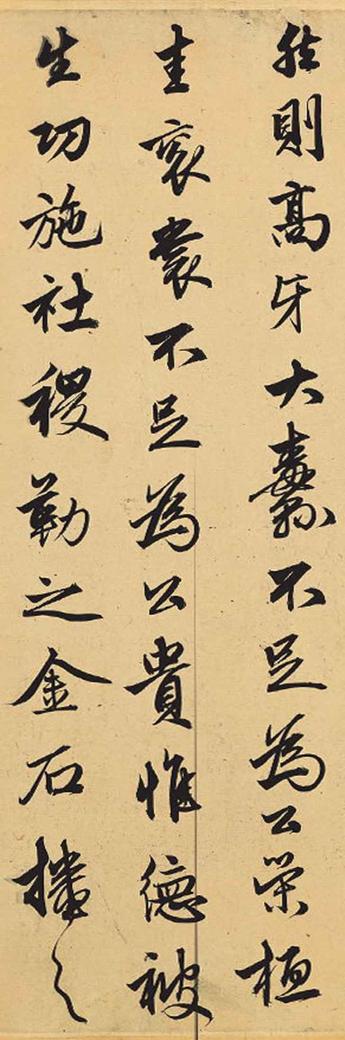 然則高牙大纛不足為公榮桓
圭袞裳不足為公貴惟德被
生功施社稷勒之金石播之